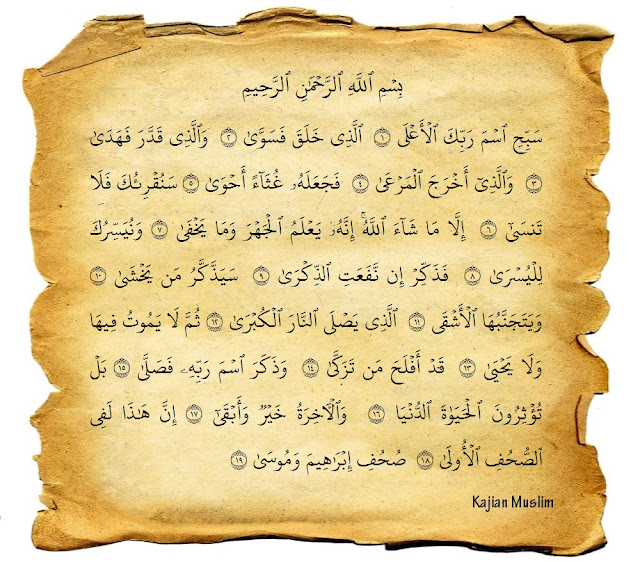 بِسْمِ ٱللَّهِ ٱلرَّحْمَٰنِ ٱلرَّحِيمِ
سَبِّحِ ٱسْمَ رَبِّكَ ٱلْأَعْلَى ١ ٱلَّذِى خَلَقَ فَسَوَّىٰ ٢ وَٱلَّذِى قَدَّرَ فَهَدَىٰ
٣ وَٱلَّذِىٓ أَخْرَجَ ٱلْمَرْعَىٰ ٤ فَجَعَلَهُۥ غُثَآءً أَحْوَىٰ ٥ سَنُقْرِئُكَ فَلَا
تَنسَىٰٓ ٦ إِلَّا مَا شَآءَ ٱللَّهُ ۚ إِنَّهُۥ يَعْلَمُ ٱلْجَهْرَ وَمَا يَخْفَىٰ ٧ وَنُيَسِّرُكَ
لِلْيُسْرَىٰ ٨ فَذَكِّرْ إِن نَّفَعَتِ ٱلذِّكْرَىٰ ٩ سَيَذَّكَّرُ مَن يَخْشَىٰ ١٠
وَيَتَجَنَّبُهَا ٱلْأَشْقَى ١١ ٱلَّذِى يَصْلَى ٱلنَّارَ ٱلْكُبْرَىٰ ١٢ ثُمَّ لَا يَمُوتُ فِيهَا
وَلَا يَحْيَىٰ ١٣ قَدْ أَفْلَحَ مَن تَزَكَّىٰ ١٤ وَذَكَرَ ٱسْمَ رَبِّهِۦ فَصَلَّىٰ ١٥ بَلْ
تُؤْثِرُونَ ٱلْحَيَوٰةَ ٱلدُّنْيَا ١٦ وَٱلْـَٔاخِرَةُ خَيْرٌ وَأَبْقَىٰٓ ١٧ إِنَّ هَٰذَا لَفِى
ٱلصُّحُفِ ٱلْأُولَىٰ ١٨ صُحُفِ إِبْرَٰهِيمَ وَمُوسَىٰ ١٩
Kajian Muslim